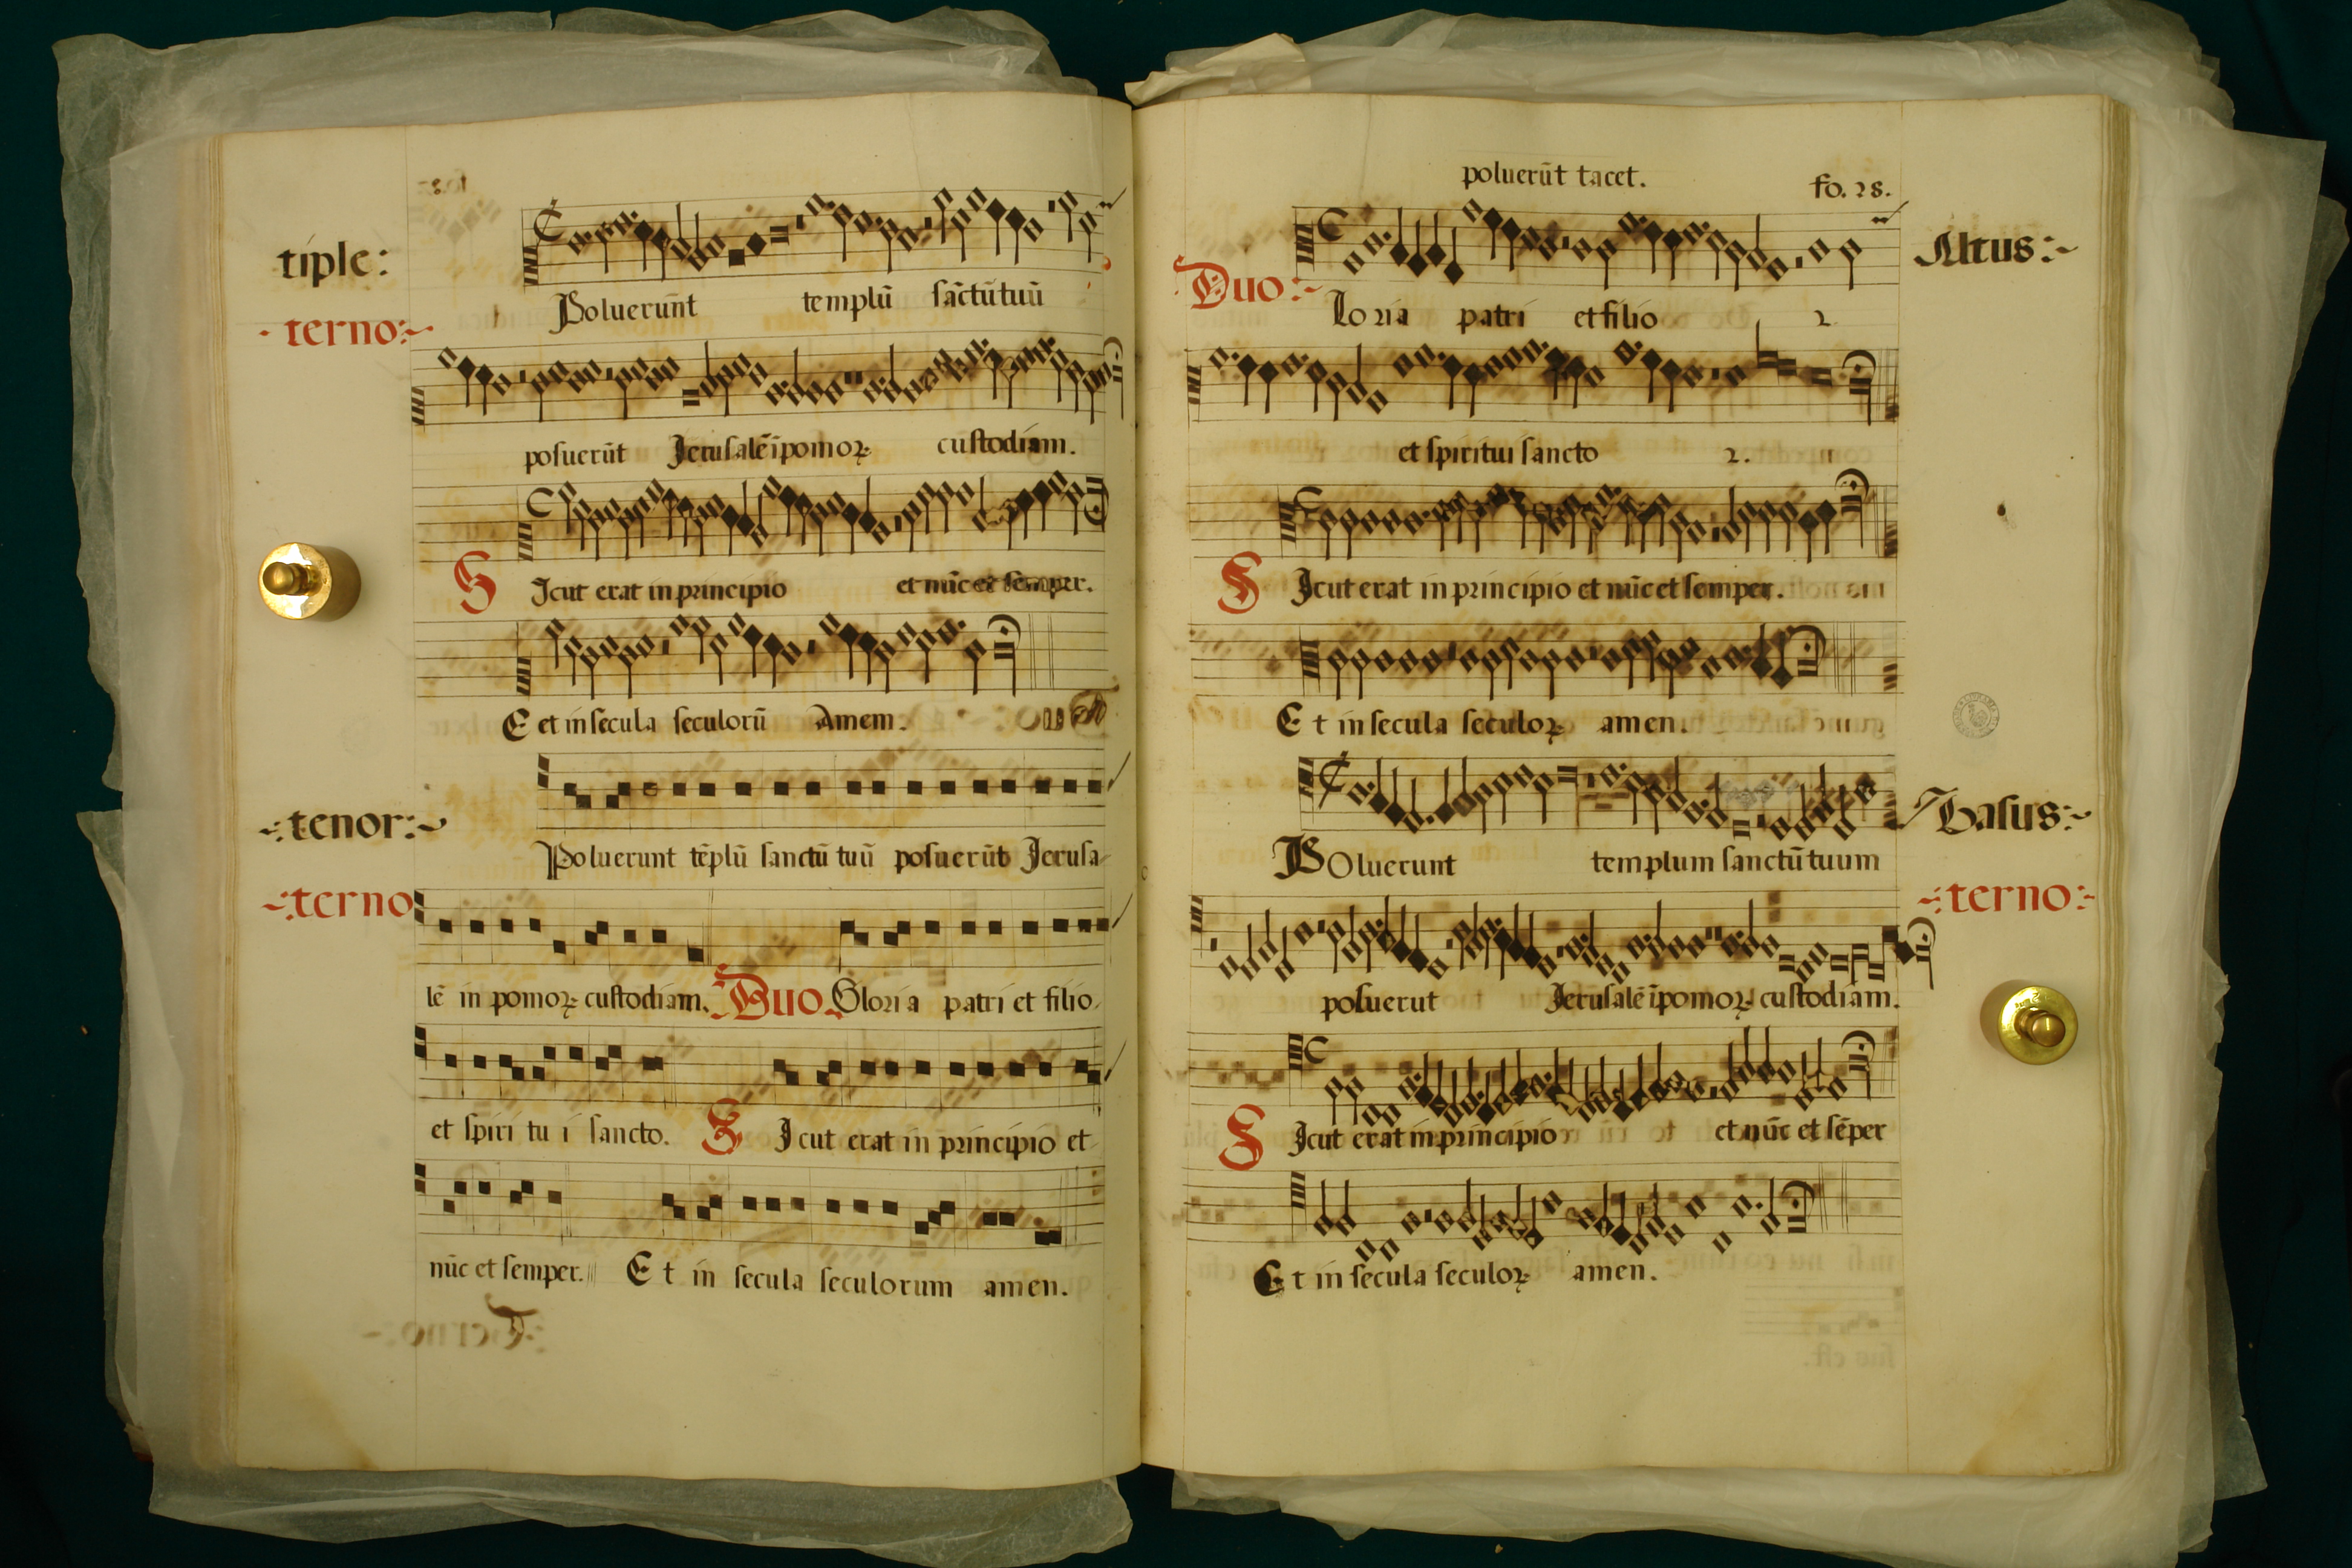 tiple:
terno:~
Poluerunt templū sāctū tuū
posuerūt Jerusalē ī pomoꝝ custodiam.
S Icut erat in principio et nūc et semper.
E et in secula seculorū Amem.
~:tenor:~
~:terno
Poluerunt tēplū sanctū tuū posuerūt Jerusa-
lē in pomoꝝ custodiam. Duo. Gloria patri et filio
et spiri tu i sancto. S Icut erat in principio et
nūc et semper. E t in secula seculorum amen.
poluerūt tacet.
fo. 28.
Altus:~
Duo:~
loria patri et filio 2.
et spiritui sancto 2.
S Icut erat in principio et nūc et semper.
E t in secula seculoꝝ amen.
Basus:~
~:terno:~
POluerunt templum sanctū tuum
posuerut Jerusalē ī pomoꝝ custodiam.
S Icut erat in principio et nūc et sēper
E t in secula seculoꝝ amen.